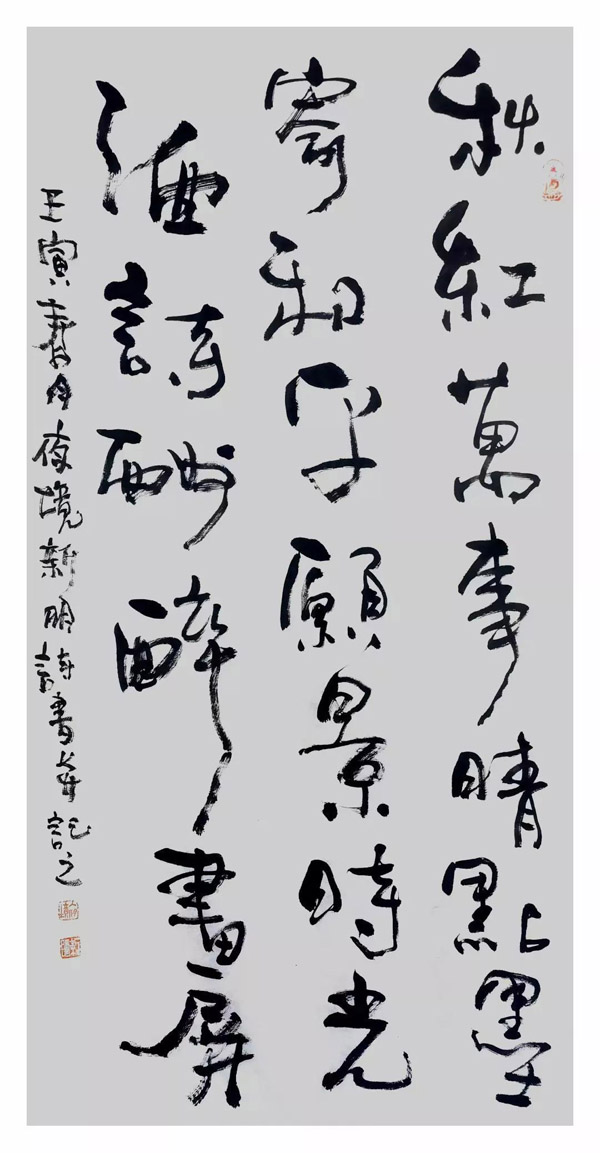 秋紅萬事晴點墨
寄和平願景時光
酒詩酬醉書屏
壬寅春月夜境新明詩書並記之